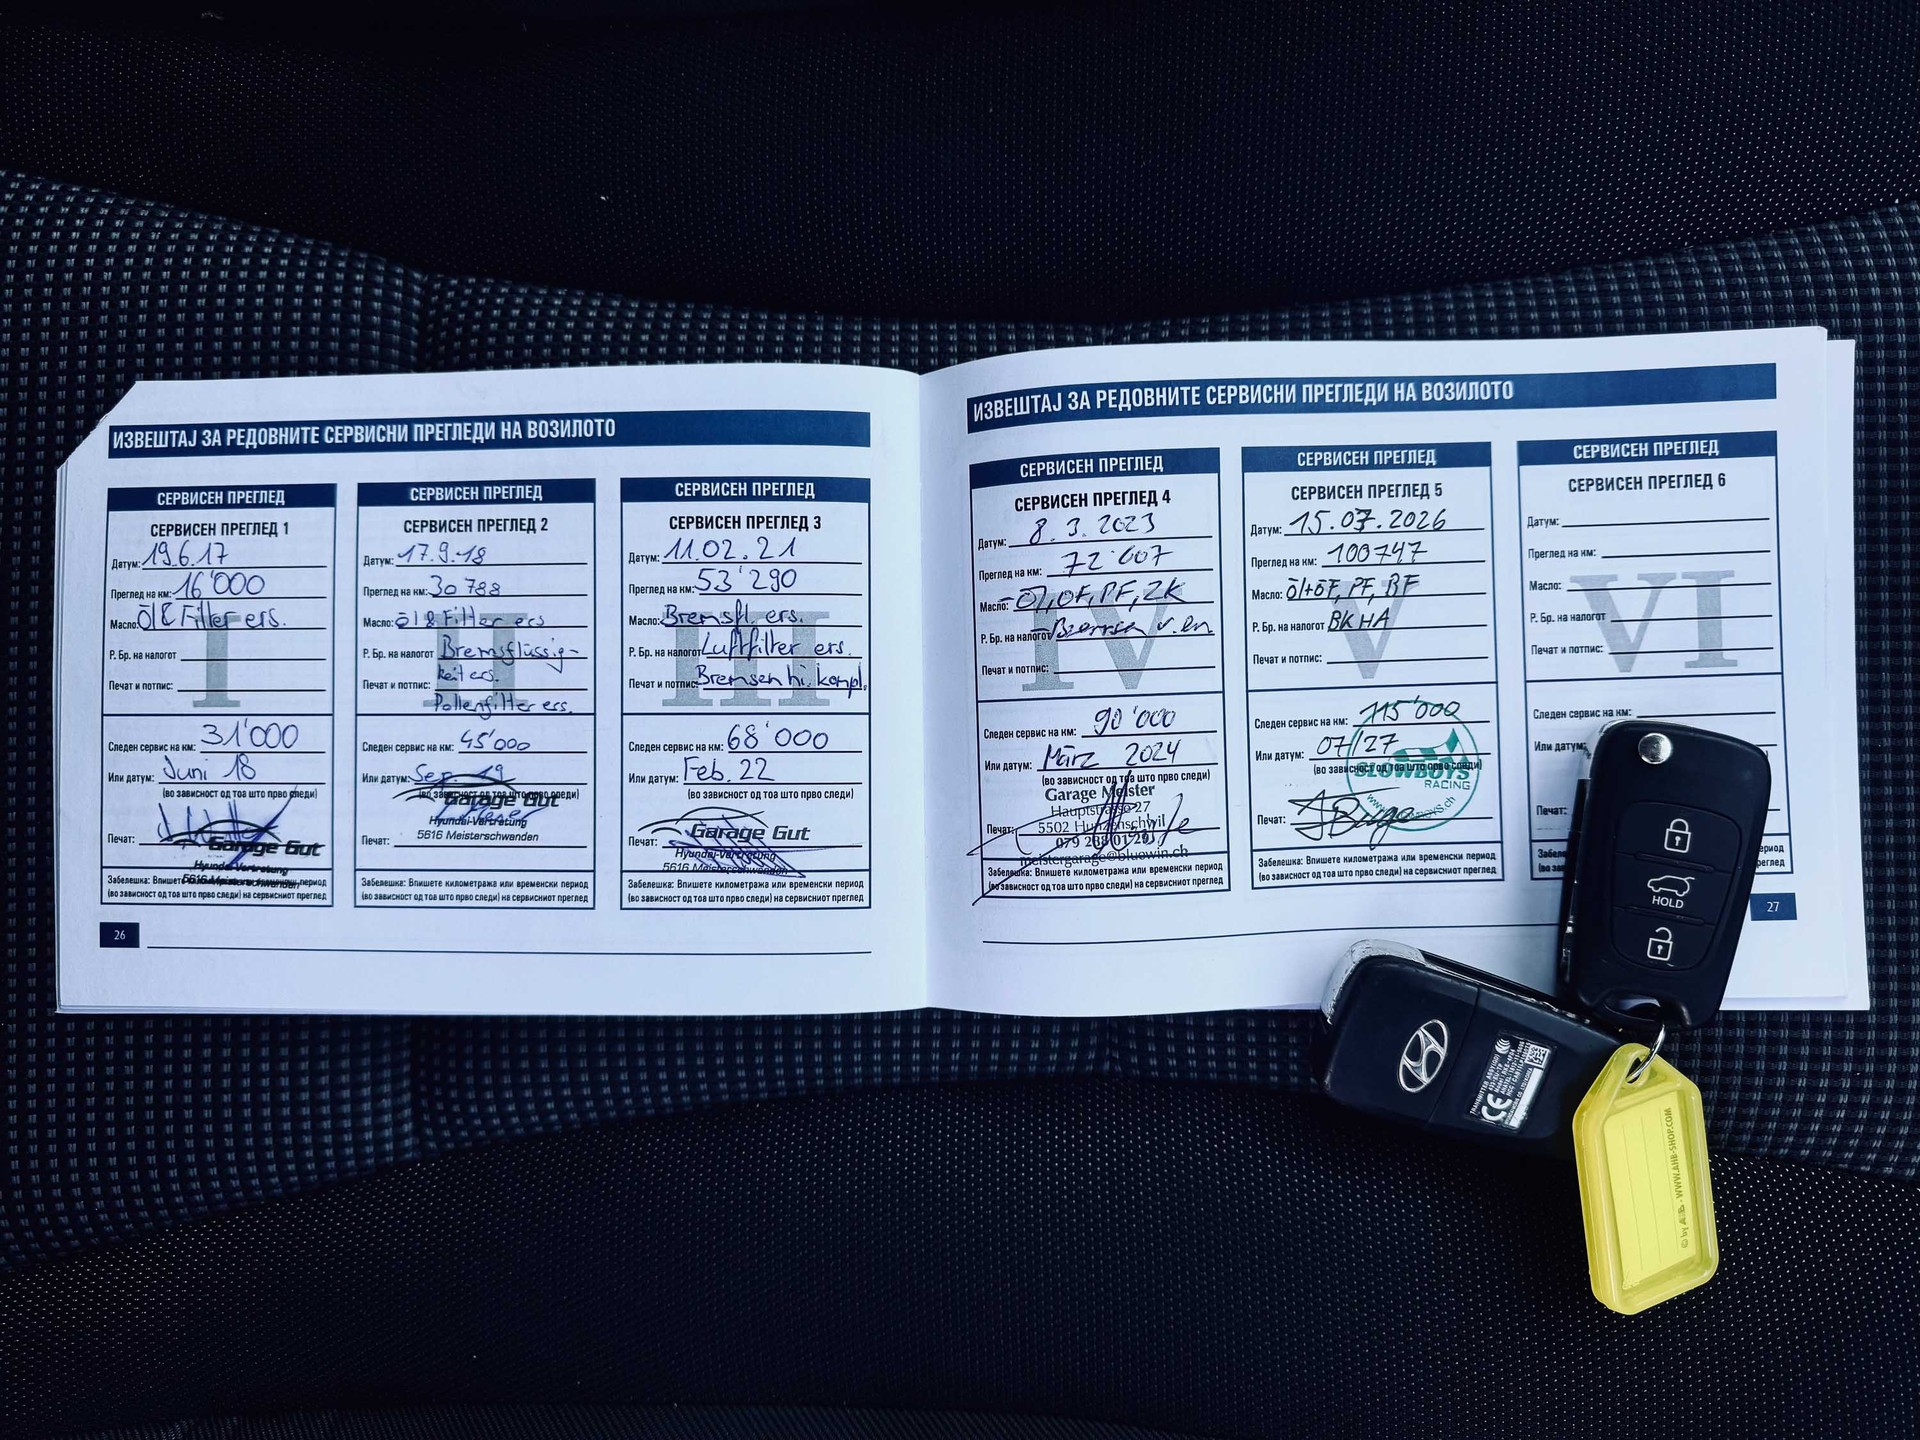 ИЗВЕШТАЈ ЗА РЕДОВНИТЕ СЕРВИСНИ ПРЕГЛЕДИ НА ВОЗИЛОТО
СЕРВИСЕН ПРЕГЛЕД
СЕРВИСЕН ПРЕГЛЕД 1
Датум: 19.6.17
Преглед на км: 16'000
Масло: Öl & Filter ers.
Р. Бр. на налогот
Печат и потпис:
I
Следен сервис на км: 31'000
Или датум: Juni 18
(во зависност од тоа што прво следи)
Печат:
Garage Gut
Hyundai-Vertretung
5616 Meisterschwanden
Забелешка: Впишете километража или временски период
(во зависност од тоа што прво следи) на сервисниот преглед
СЕРВИСЕН ПРЕГЛЕД
СЕРВИСЕН ПРЕГЛЕД 2
Датум: 17.9.18
Преглед на км: 30788
Масло: Öl & Filter ers
Р. Бр. на налогот Bremsflüssig-
keit ers.
Печат и потпис:
Pollenfilter ers.
II
Следен сервис на км: 45'000
Или датум: Sep. 19
(во зависност од тоа што прво следи)
Garage Gut
Hyundai-Vertretung
Печат: 5616 Meisterschwanden
Забелешка: Впишете километража или временски период
(во зависност од тоа што прво следи) на сервисниот преглед
СЕРВИСЕН ПРЕГЛЕД
СЕРВИСЕН ПРЕГЛЕД 3
Датум: 11.02.21
Преглед на км: 53'290
Масло: Bremsfl. ers.
Р. Бр. на налогот Luftfilter ers.
Печат и потпис: Bremsen hi. kompl.
III
Следен сервис на км: 68'000
Или датум: Feb. 22
(во зависност од тоа што прво следи)
Печат: Garage Gut
Hyundai-Vertretung
5616 Meisterschwanden
Забелешка: Впишете километража или временски период
(во зависност од тоа што прво следи) на сервисниот преглед
26
ИЗВЕШТАЈ ЗА РЕДОВНИТЕ СЕРВИСНИ ПРЕГЛЕДИ НА ВОЗИЛОТО
СЕРВИСЕН ПРЕГЛЕД
СЕРВИСЕН ПРЕГЛЕД 4
Датум: 8.3.2023
Преглед на км: 72'607
Масло: Öl, ÖF, PF, ZK
Р. Бр. на налогот Bremsen v. en
Печат и потпис:
IV
Следен сервис на км: 90'000
Или датум: März 2024
(во зависност од тоа што прво следи)
Garage Meister
Hauptstrasse 27
Печат: 5502 Hunzenschwil
meistergarage@bluewin.ch
Забелешка: Впишете километража или временски период
(во зависност од тоа што прво следи) на сервисниот преглед
СЕРВИСЕН ПРЕГЛЕД
СЕРВИСЕН ПРЕГЛЕД 5
Датум: 15.07.2026
Преглед на км: 100747
Масло: Öl+ÖF, PF, BF
Р. Бр. на налогот BK HA
Печат и потпис:
V
Следен сервис на км: 115'000
Или датум: 07/27
(во зависност од тоа што прво следи)
SLOWBOYS
RACING
Печат:
Забелешка: Впишете километража или временски период
(во зависност од тоа што прво следи) на сервисниот преглед
СЕРВИСЕН ПРЕГЛЕД
СЕРВИСЕН ПРЕГЛЕД 6
Датум:
Преглед на км:
Масло:
Р. Бр. на налогот
Печат и потпис:
VI
Следен сервис на км:
Или датум:
Печат:
27
HOLD
CE
WWW.AHB-SHOP.COM